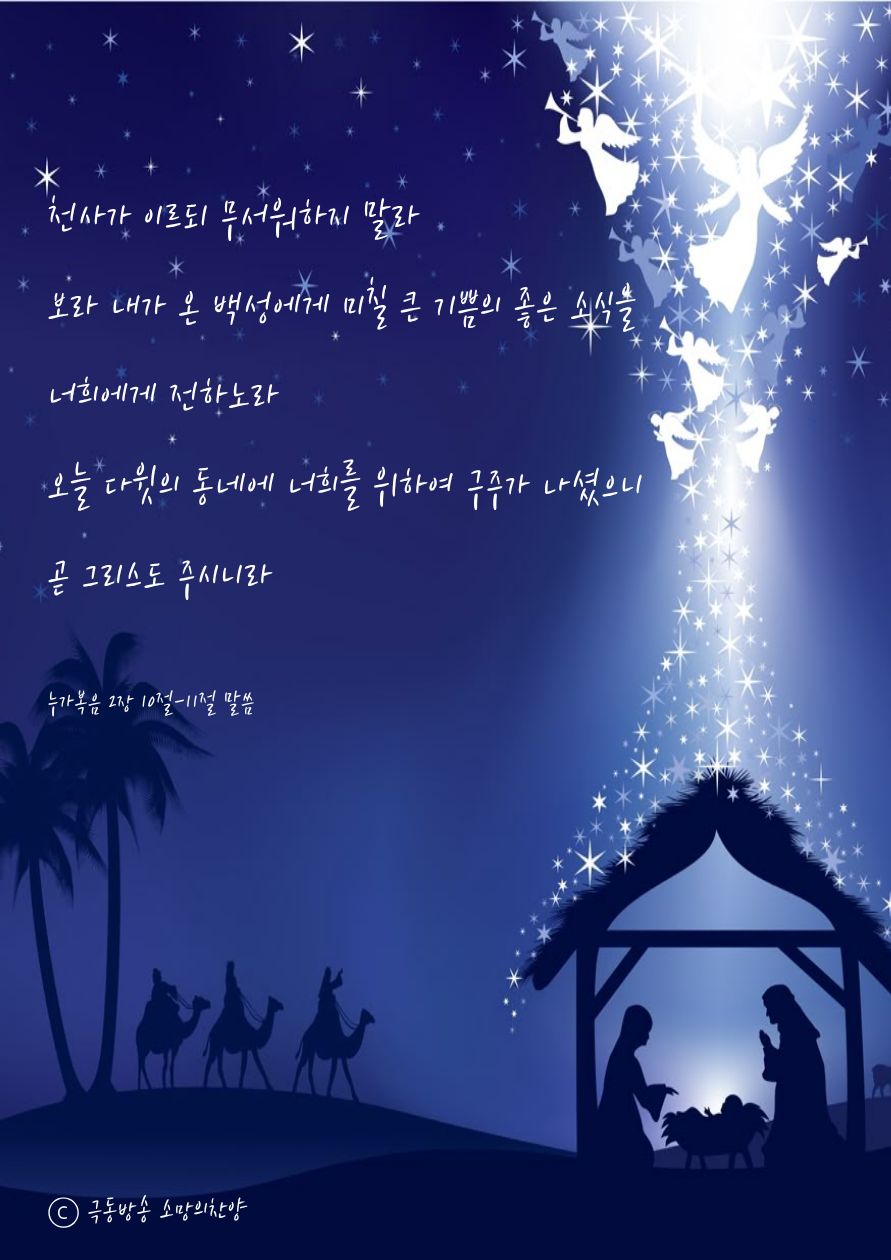 천사가 이르되 무서워하지 말라
보라 내가 온 백성에게 미칠 큰 기쁨의 좋은 소식을
너희에게 전하노라
오늘 다윗의 동네에 너희를 위하여 구주가 나셨으니
곧 그리스도 주시니라
누가복음 2장 10절-11절 말씀
ⓒ 극동방송 소망의찬양